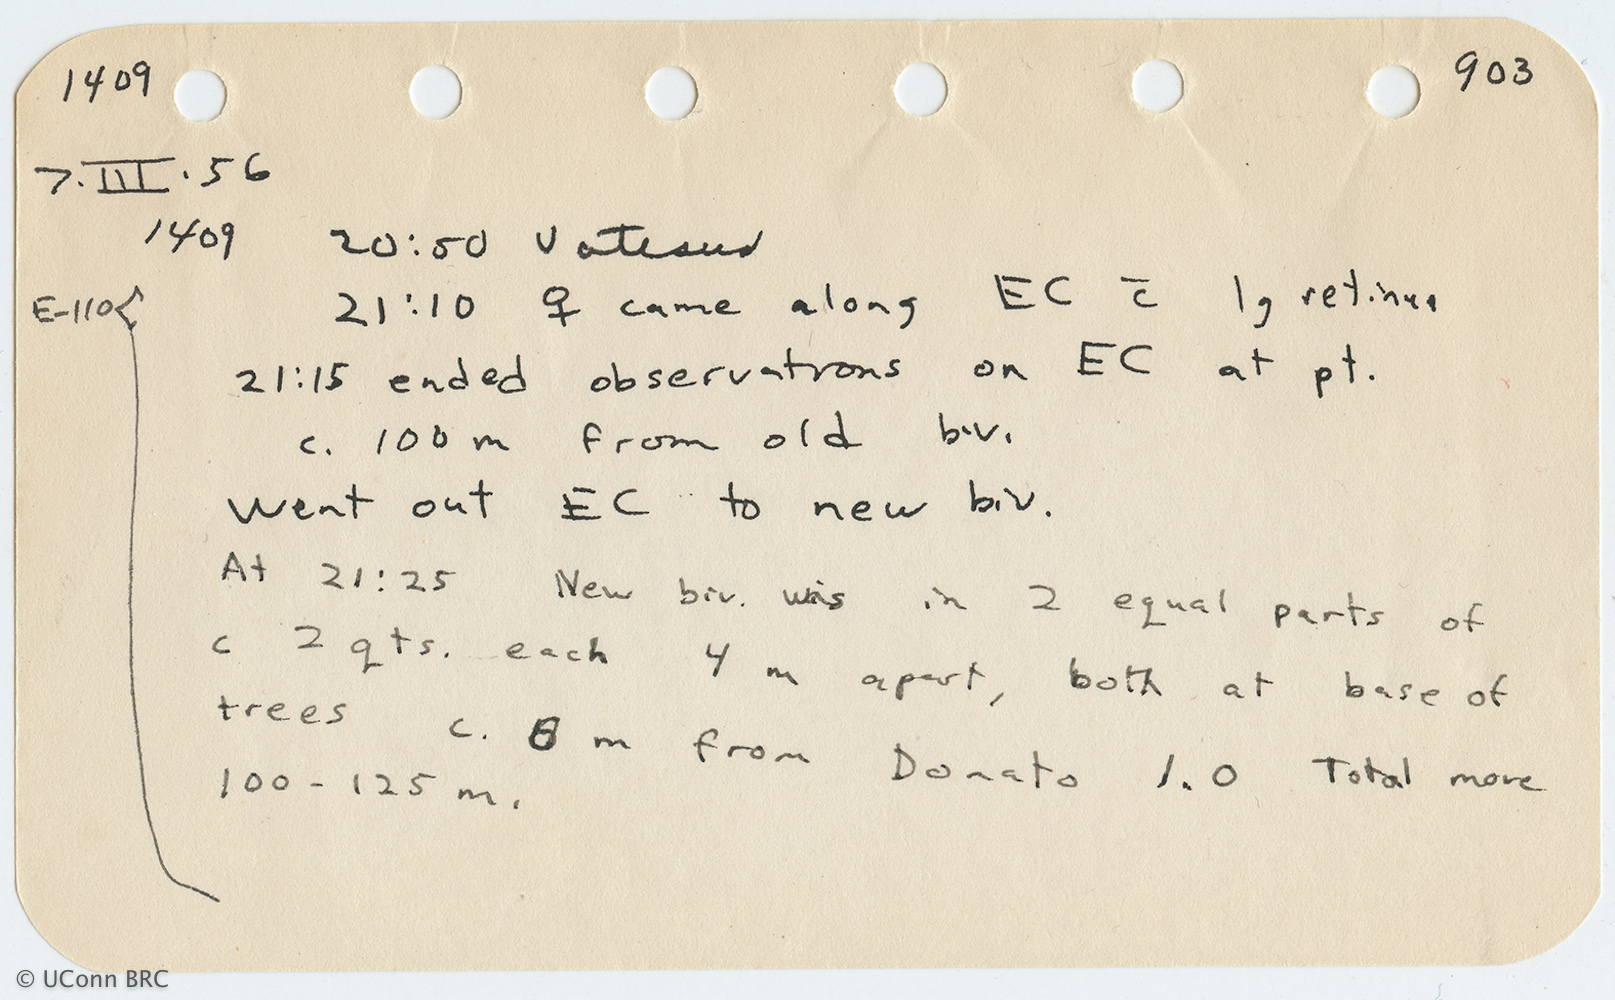 1409 903
7.III.56
1409 20:50 Vatesus
E-110 21:10 ♀ came along EC c̄ lg retinue
21:15 ended observations on EC at pt.
c. 100 m from old biv.
Went out EC to new biv.
At 21:25 New biv. was in 2 equal parts of
c 2 qts. each 4 m apart, both at base of
trees c. 6 m from Donato 1.0 Total move
100-125 m.
© UConn BRC